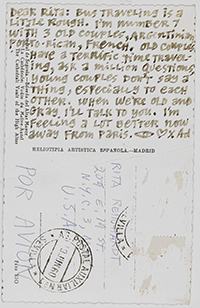 DEAR RITA: BUS TRAVELING IS A
LITTLE ROUGH. I'M NUMBER 7
WITH 3 OLD COUPLES, ARGENTINIAN,
PORTO-RICAN, FRENCH, OLD COUPLES
HAVE A TERRIFIC TIME TRAVEL-
ASK A MILLION QUESTIONS
YOUNG COUPLES DON'T SAY A
THING, ESPECIALLY TO EACH
OTHER. WHEN WE'RE OLD AND
GRAY I'LL TALK TO YOU. I'M
FEELING A LOT BETTER NOW
AWAY FROM PARIS.
Ad
HELIOTIPIA ARTISTICA ESPAÑOLA.—MADRID
RITA RE
274 E 14 ST
NYC 3
USA
POR AVION
SEVILLA